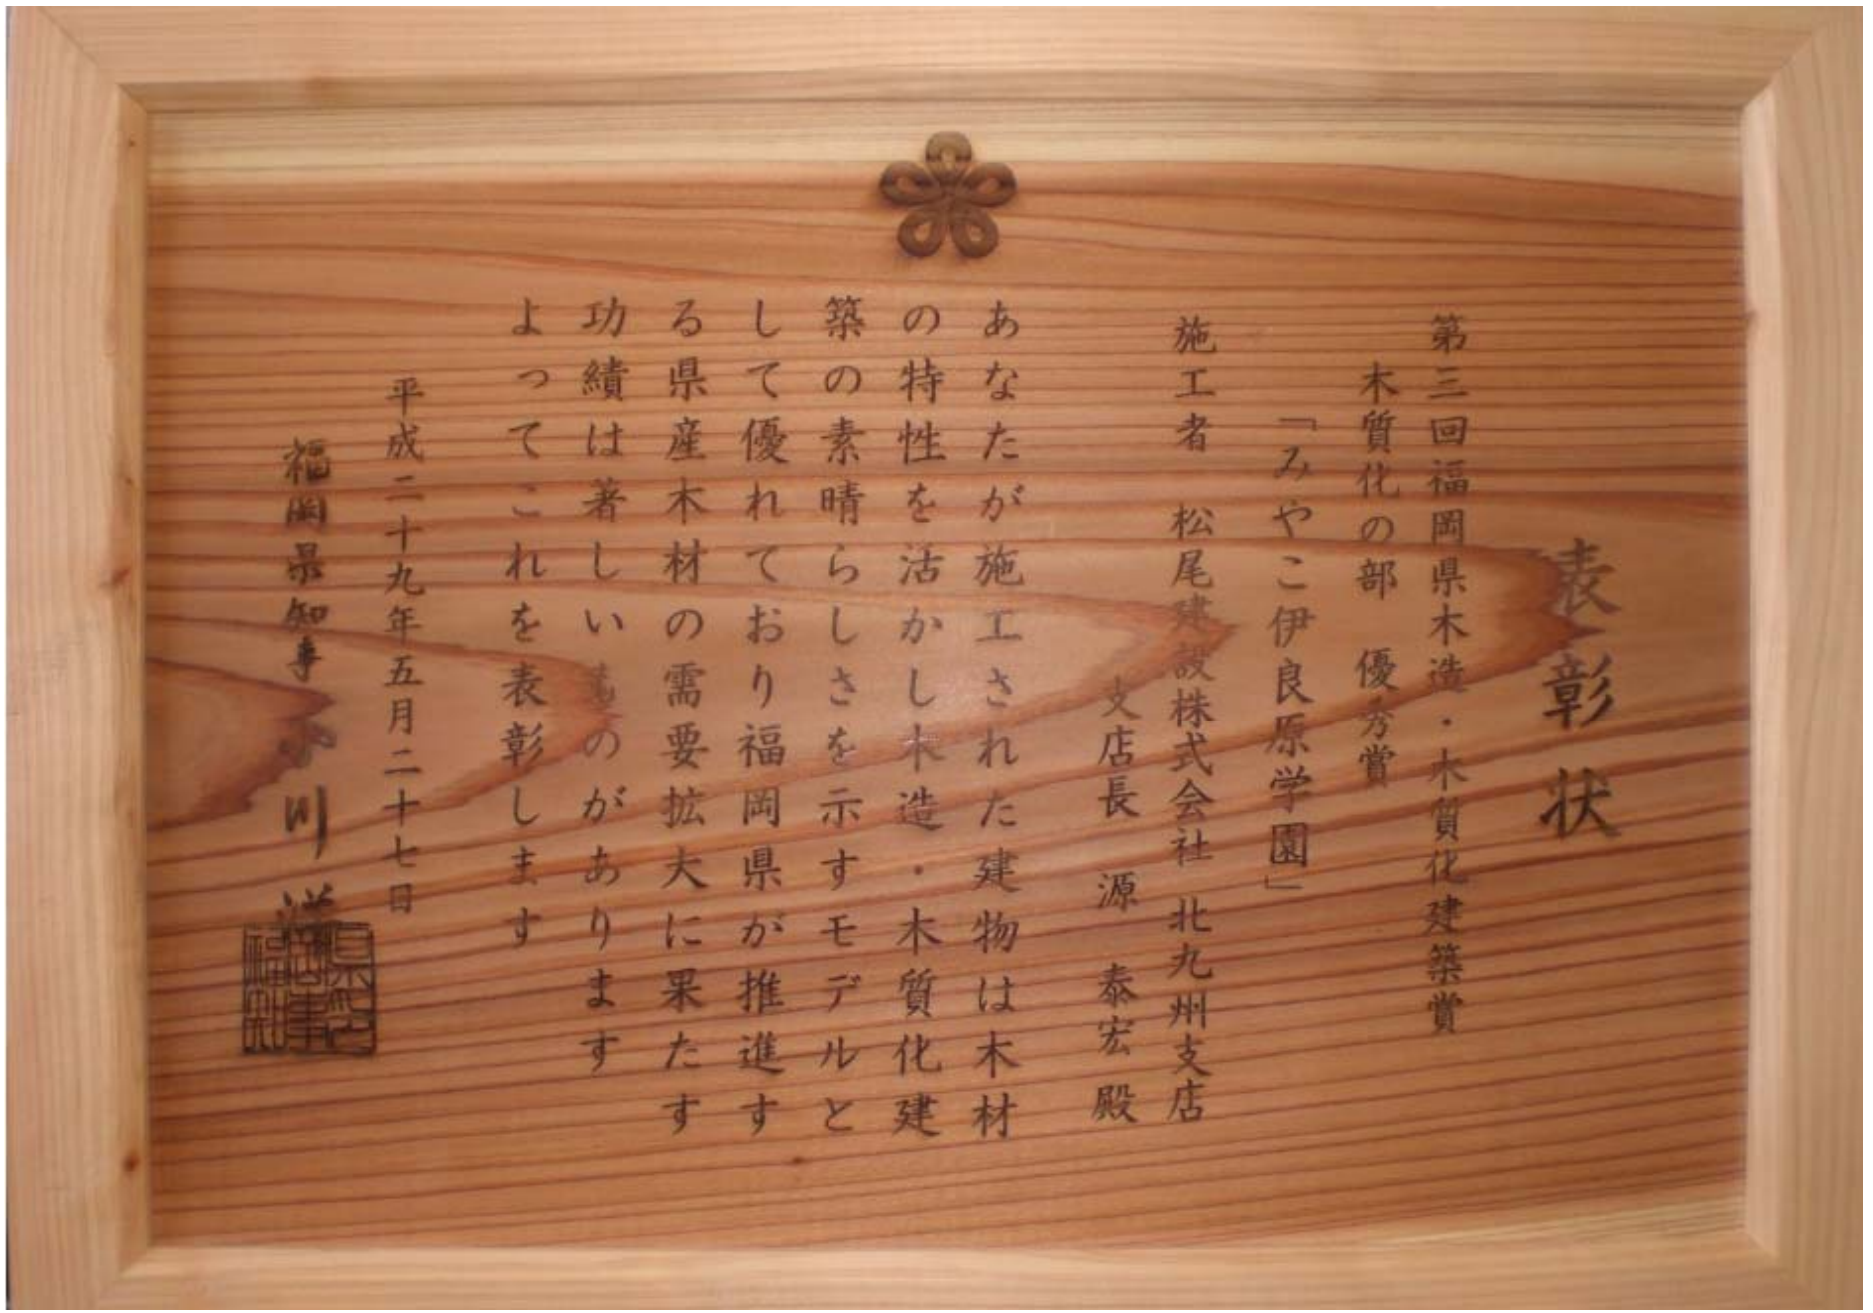 表彰状
第三回福岡県木造・木質化建築賞
木質化の部 優秀賞
「みやこ伊良原学園」
施工者 松尾建設株式会社 北九州支店
支店長 源 泰宏 殿
あなたが施工された建物は木材
の特性を活かし木造・木質化建
築の素晴らしさを示すモデルと
して優れており福岡県が推進す
る県産木材の需要拡大に果たす
功績は著しいものがあります
よってこれを表彰します
平成二十九年五月二十七日
福岡県知事 小川 洋